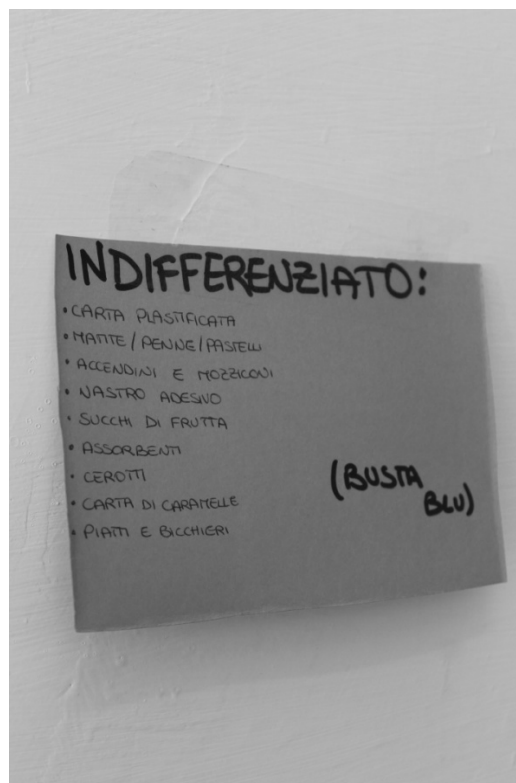 INDIFFERENZIATO:
• CARTA PLASTIFICATA
• MATITE / PENNE / PASTELLI
• ACCENDINI E MOZZICONI
• NASTRO ADESIVO
• SUCCHI DI FRUTTA
• ASSORBENTI
• CEROTTI
• CARTA DI CARAMELLE
• PIATTI E BICCHIERI
(BUSTA
BLU)